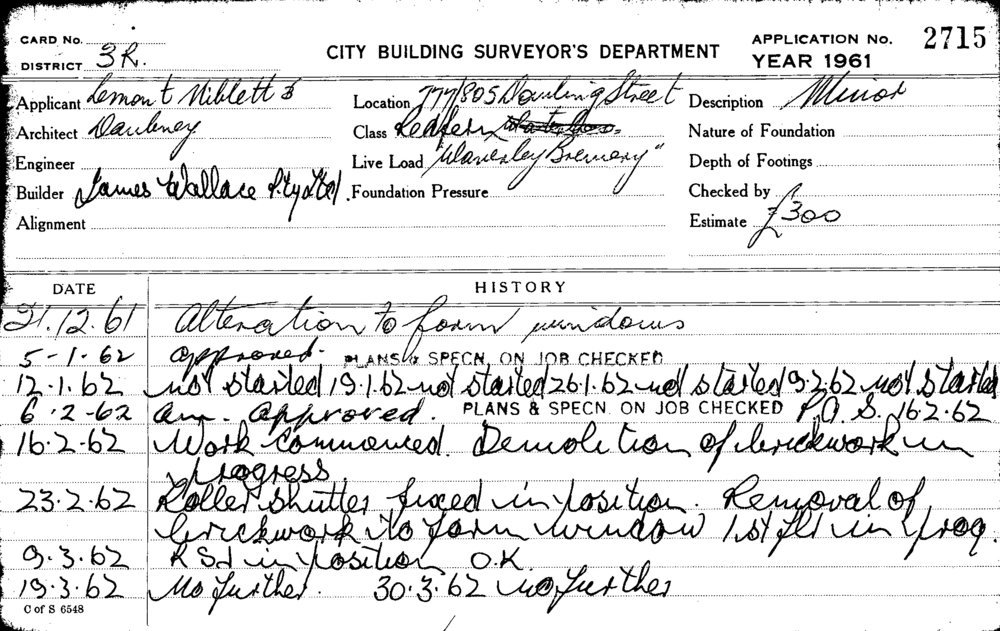 CARD No.
DISTRICT 3R.
CITY BUILDING SURVEYOR'S DEPARTMENT
APPLICATION No. 2715
YEAR 1961
Applicant Lemont Niblett &
Architect Daubney
Engineer
Builder James Wallace P.ty Ltd.
Alignment
Location 777/805 Dowling Street
Class Redfern
Live Load "Waverley Brewery"
Foundation Pressure
Description Minor
Nature of Foundation
Depth of Footings
Checked by
Estimate £300
DATE HISTORY
21.12.61 Alteration to form windows
5-1-62 approved. PLANS & SPECN. ON JOB CHECKED
12.1.62 not started 19.1.62 not started 26.1.62 not started 9.2.62 not started
6.2-62 am. approved. PLANS & SPECN. ON JOB CHECKED P.O.S. 16.2.62
16.2.62 Work commenced. Demolition of brickwork in
progress
23.2.62 Roller shutter fixed in position. Removal of
brickwork to form window 1st flr in prog.
9.3.62 RSJ in position O.K.
19.3.62 No further. 30.3.62 no further
C of S 6548